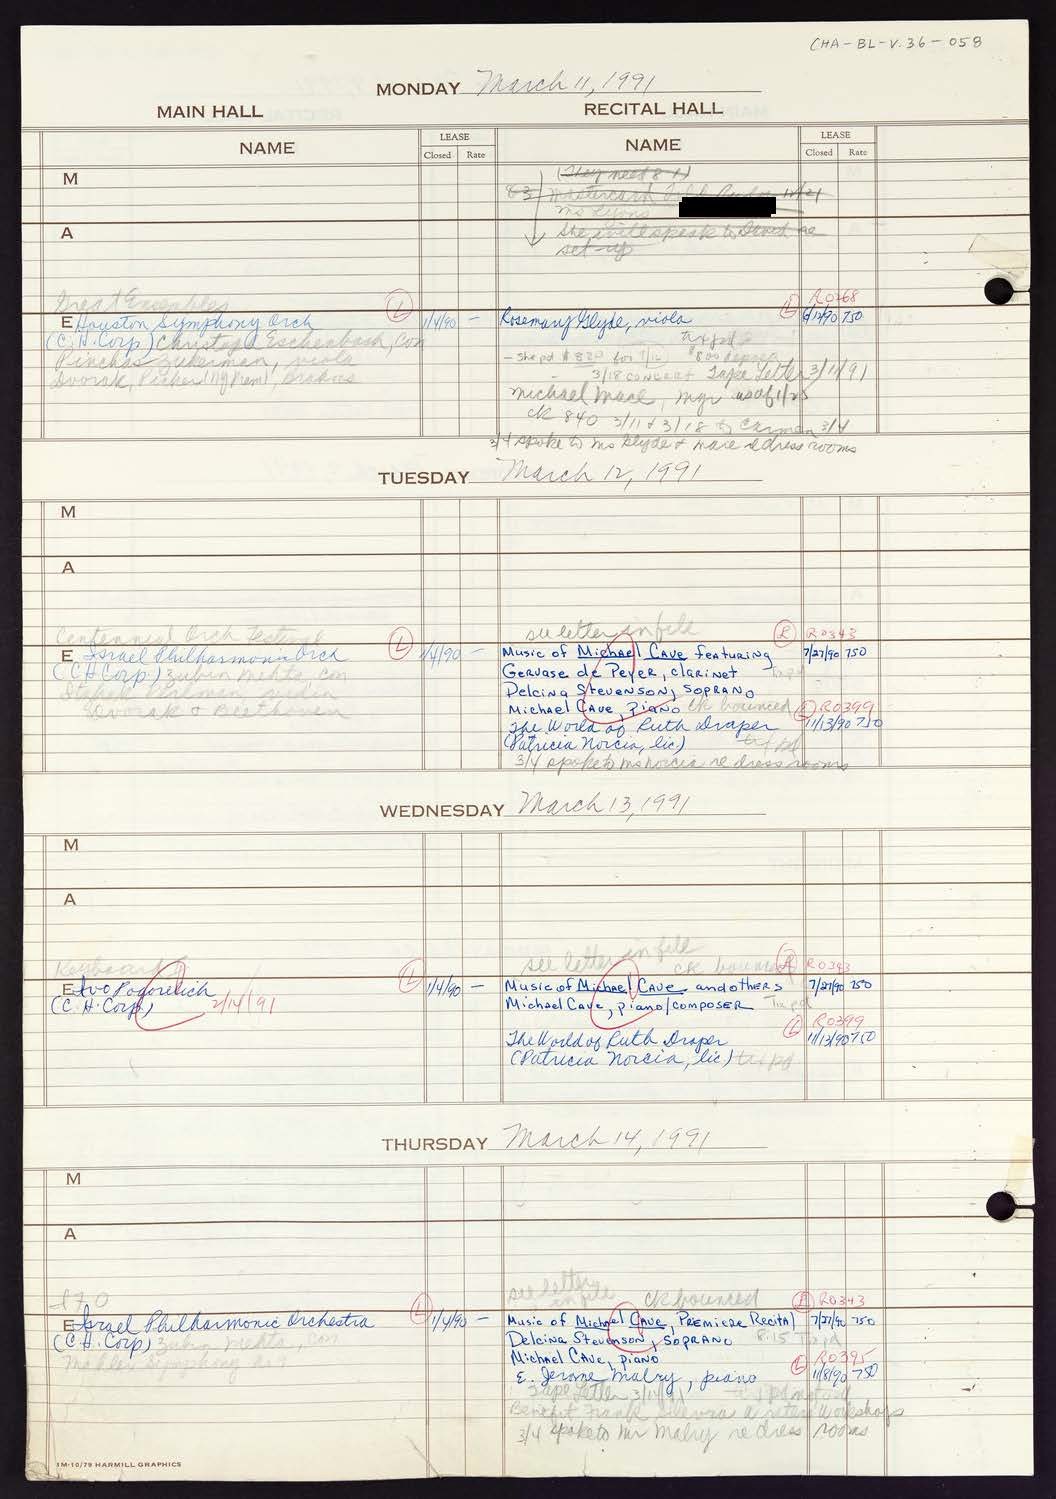 CHA-BL-V.36-058
MONDAY March 11, 1991
MAIN HALL RECITAL HALL
NAME LEASE Closed Rate NAME LEASE Closed Rate
M
(They need 8-1)
83 Mastercash 12/21
Ms Lyons
A
She will speak to David re
set-up
Great Ensembles (L)
E Houston Symphony Orch 1/4/90 –
(C.H. Corp) Christoph Eschenbach, con
Pinchas Zukerman, viola
Dvorak, Picker (NY Prem), Brahms
(L) R0268
Rosemary Glyde, viola 750
tix pd
– She pd $820 for 7/12 $800 deposit
3/18 CONCERT Tape Letter 3/11/91
Michael Mace, mgr as of 1/25
ck 840 3/11 & 3/18 to Carmen 3/4
3/4 spoke to Ms Glyde & Mace re dress rooms
TUESDAY March 12, 1991
M
A
Centennial Orch Festival (L)
E Israel Philharmonic Orch 1/4/90 –
(C.H. Corp.) Zubin Mehta, con
Itzhak Perlman, violin
Dvorak & Beethoven
see letter in file (L) R0343
Music of Michael Cave featuring 7/27/90 750
Gervase de Peyer, clarinet Tix pd
Delcina Stevenson, soprano
Michael Cave, piano ck bounced (L) R0399
The World of Ruth Draper 11/13/90 750
(Patricia Norcia, lic) tix pd
3/4 spoke to Ms Norcia re dress rooms
WEDNESDAY March 13, 1991
M
A
Keyboard (L)
E Ivo Pogorelich 1/4/90 –
(C.H. Corp.) 2/14/91
see letter in file
ck bounced (L) R0343
Music of Michael Cave and others 7/27/90 750
Michael Cave, piano/composer Tix pd
(L) R0399
The World of Ruth Draper 11/13/90 750
(Patricia Norcia, lic) tix pd
THURSDAY March 14, 1991
M
A
IPO (L)
E Israel Philharmonic Orchestra 1/4/90 –
(C.H. Corp) Zubin Mehta, con
Mahler Symphony
see letter
in file ck bounced (L) R0343
Music of Michael Cave, Premiere Recital 7/27/90 750
Delcina Stevenson, soprano 8:15 Tix pd
Michael Cave, piano (L) R0395
E. Jerome Malry, piano 11/8/90 750
Tape Letter 3/14/91
Benefit Frank Writers Workshops
3/4 spoke to Mr Malry re dress rooms
1M-10/79 HARMILL GRAPHICS